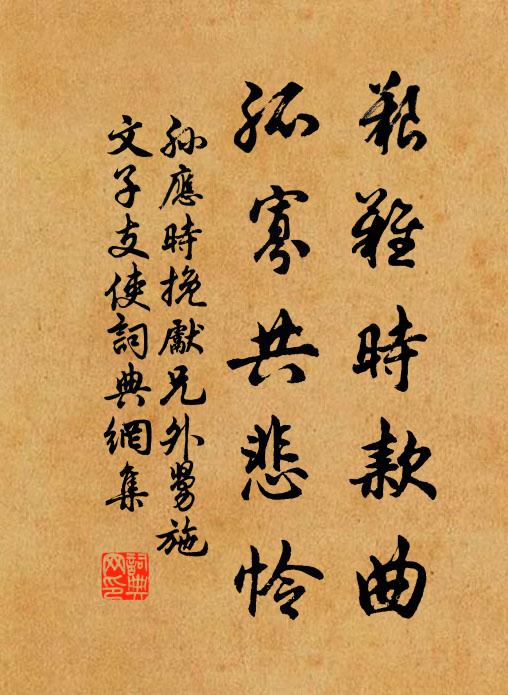 艱難時款曲
孤寡共悲怜
孙應時挽獻兄外舅施
文子支使詞典網集
詞典網印